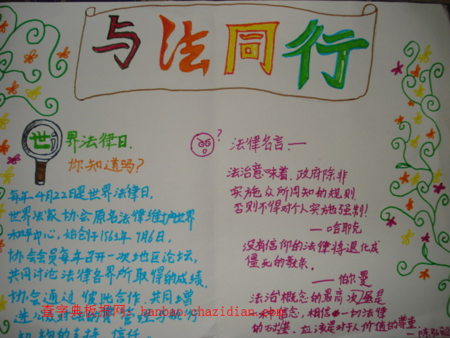 与法同行
世界法律日
你知道吗?
每年4月22日是世界法律日。
世界法家协会原名法律维护世界
和平中心,始创于1963年7月6日。
协会会员每年召开一次地区论坛,
共同讨论法律各界所取得的成绩。
协会通过彼此合作、共同增
?
法律名言——
法治意味着,政府除非
实施众所周知的规则
否则不得对个人实施强制!
——哈耶克
没有信仰的法律将退化成
僵死的教条。
——伯尔曼
法治概念的最高层
是一种信念,相信一切法律
的基础,应该是对于人价值的尊重。